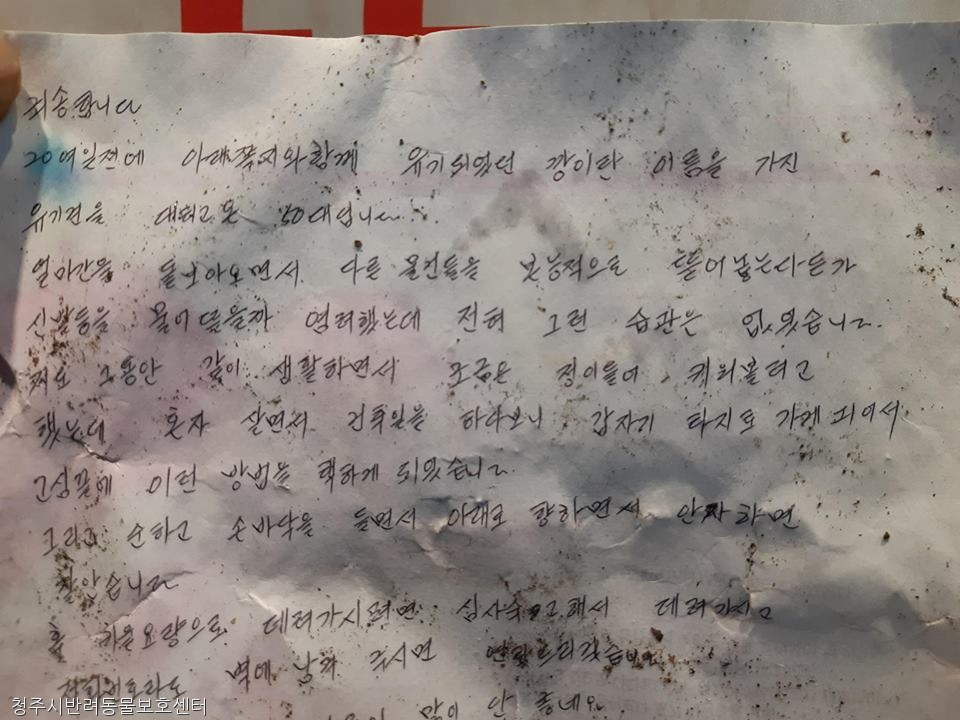 죄송합니다
20여일전에 아래쪽지와함께 유기되었던 깡이란 이름을 가진
유기견을 데리고온 50대입니다.
얼마간을 돌보아오면서 다른 물건들을 본능적으로 물어뜯는다든가
신발등을 물어뜯을까 염려했는데 전혀 그런 습관은 없었습니다.
저도 그동안 같이 생활하면서 조금은 정이들어 키워볼려고
했는데 혼자 살면서 건축일을 하다보니 갑자기 타지로 가게 되어서
고심끝에 이런 방법을 택하게 되었습니다
그리고 순하고 손바닥을 들면서 아래로 향하면서 안짜 하면
잘앉습니다
혹 키울요량으로 데려가시려면 심사숙고해서 데려가시고
벽에 남겨 주시면 연락드리겠습니다
많이 안 좋네요
청주시반려동물보호센터